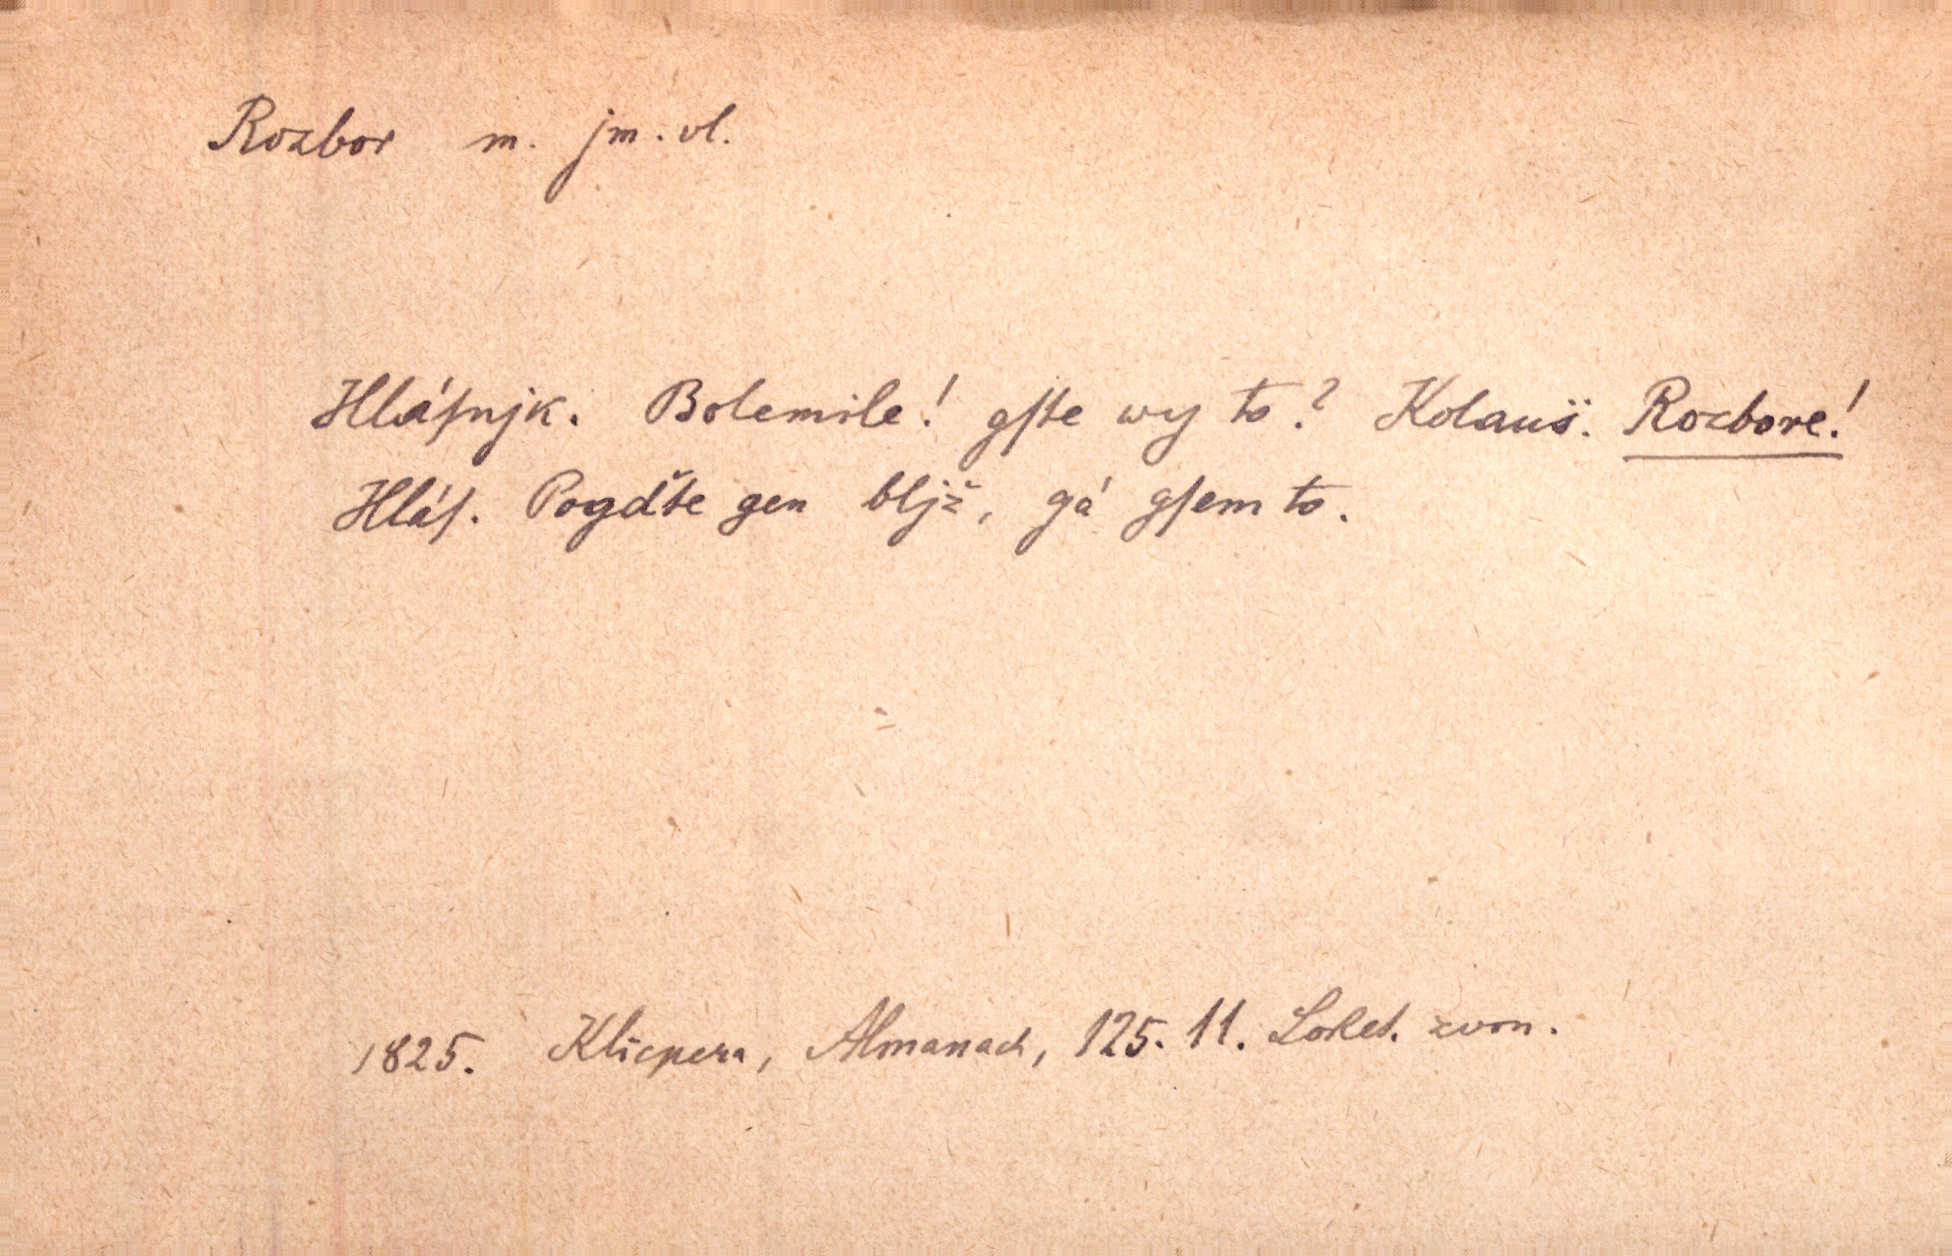 Rozbor m. jm. vl.
Hláſnjk. Bolemile! gſte wy to? Kolauš. Rozbore!
Hláſ. Pogďte gen bljž, gá gſem to.
1825. Klicpera, Almanach, 125. 11. Loket. zvon.